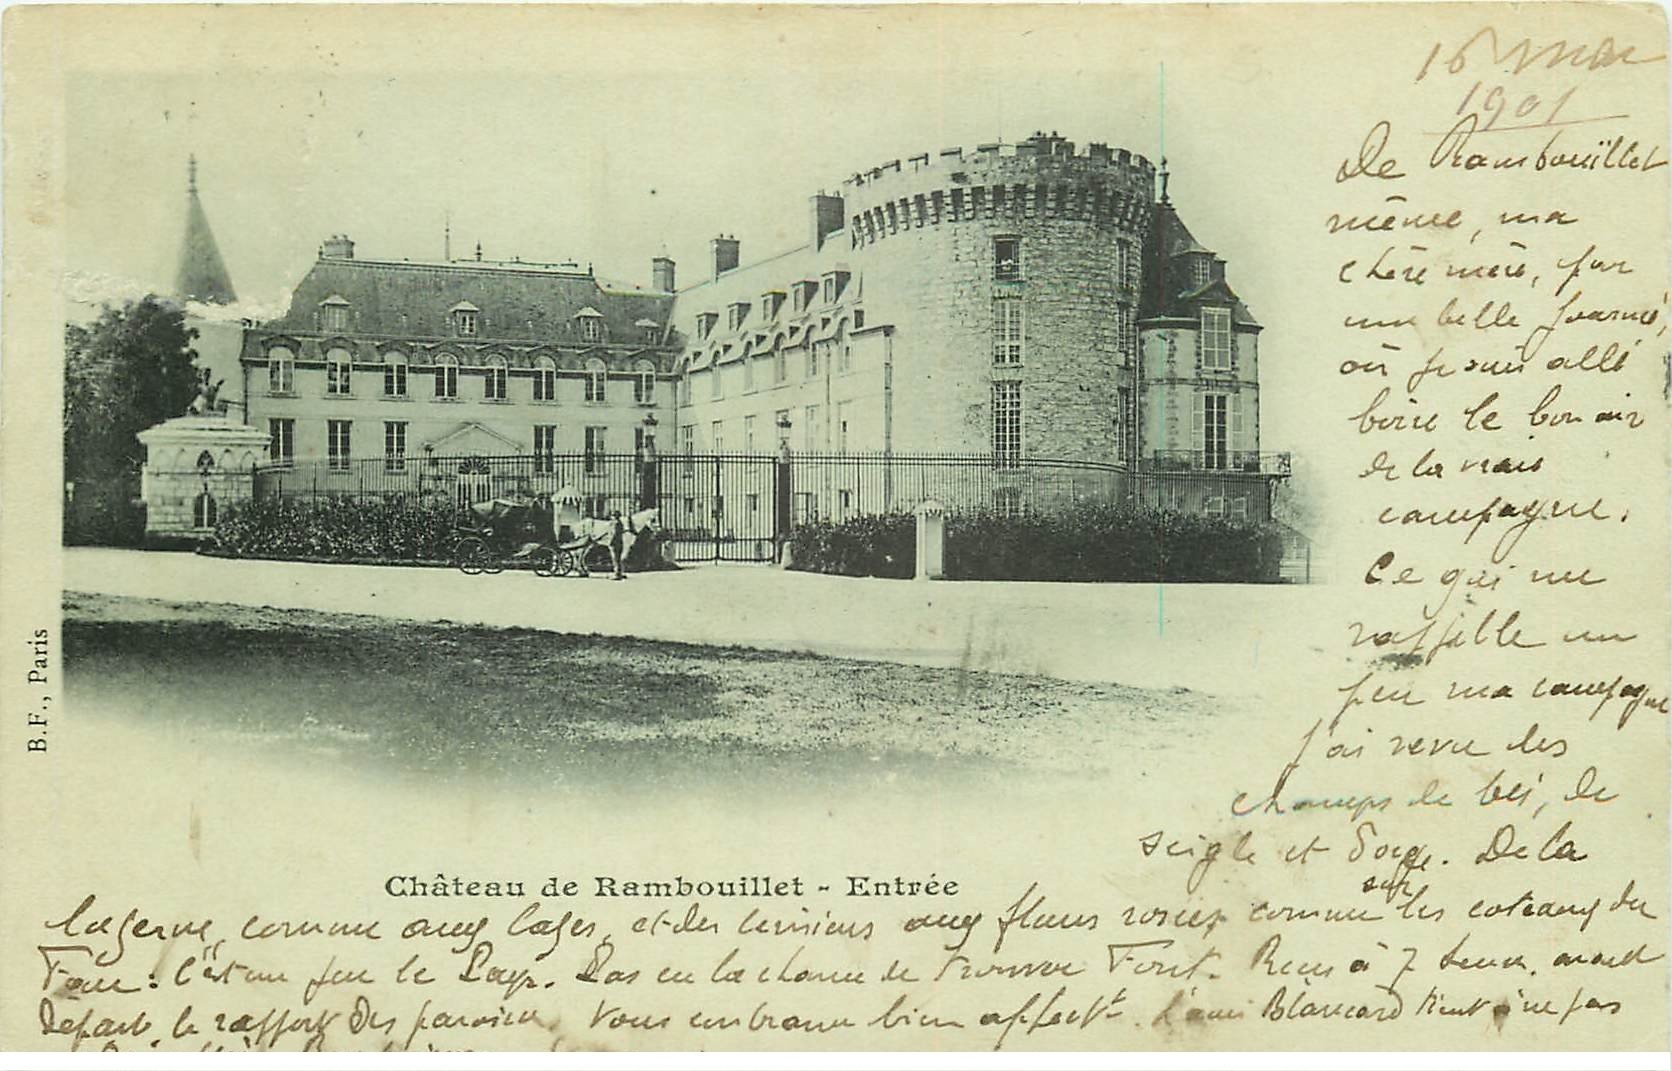 16 mai
1901
De Rambouïllet
même, ma
chère mère, par
une belle journée,
où je suis allé
boire le bon air
de la vraie
campagne.
Ce qui me
rappelle un
peu ma campagne
J'ai revu des
champs de blé, de
seigle et d'orge. De la
luzerne, comme aux et des aux fleurs roses, comme sur les coteaux du
: c'est un peu le Pays. Pas eu la chance de trouver Reçu à 7 heures, avant
départ, le Vous embrasse bien affectt. L'ami Blancard tient à ne pas
Château de Rambouillet - Entrée
B.F., Paris